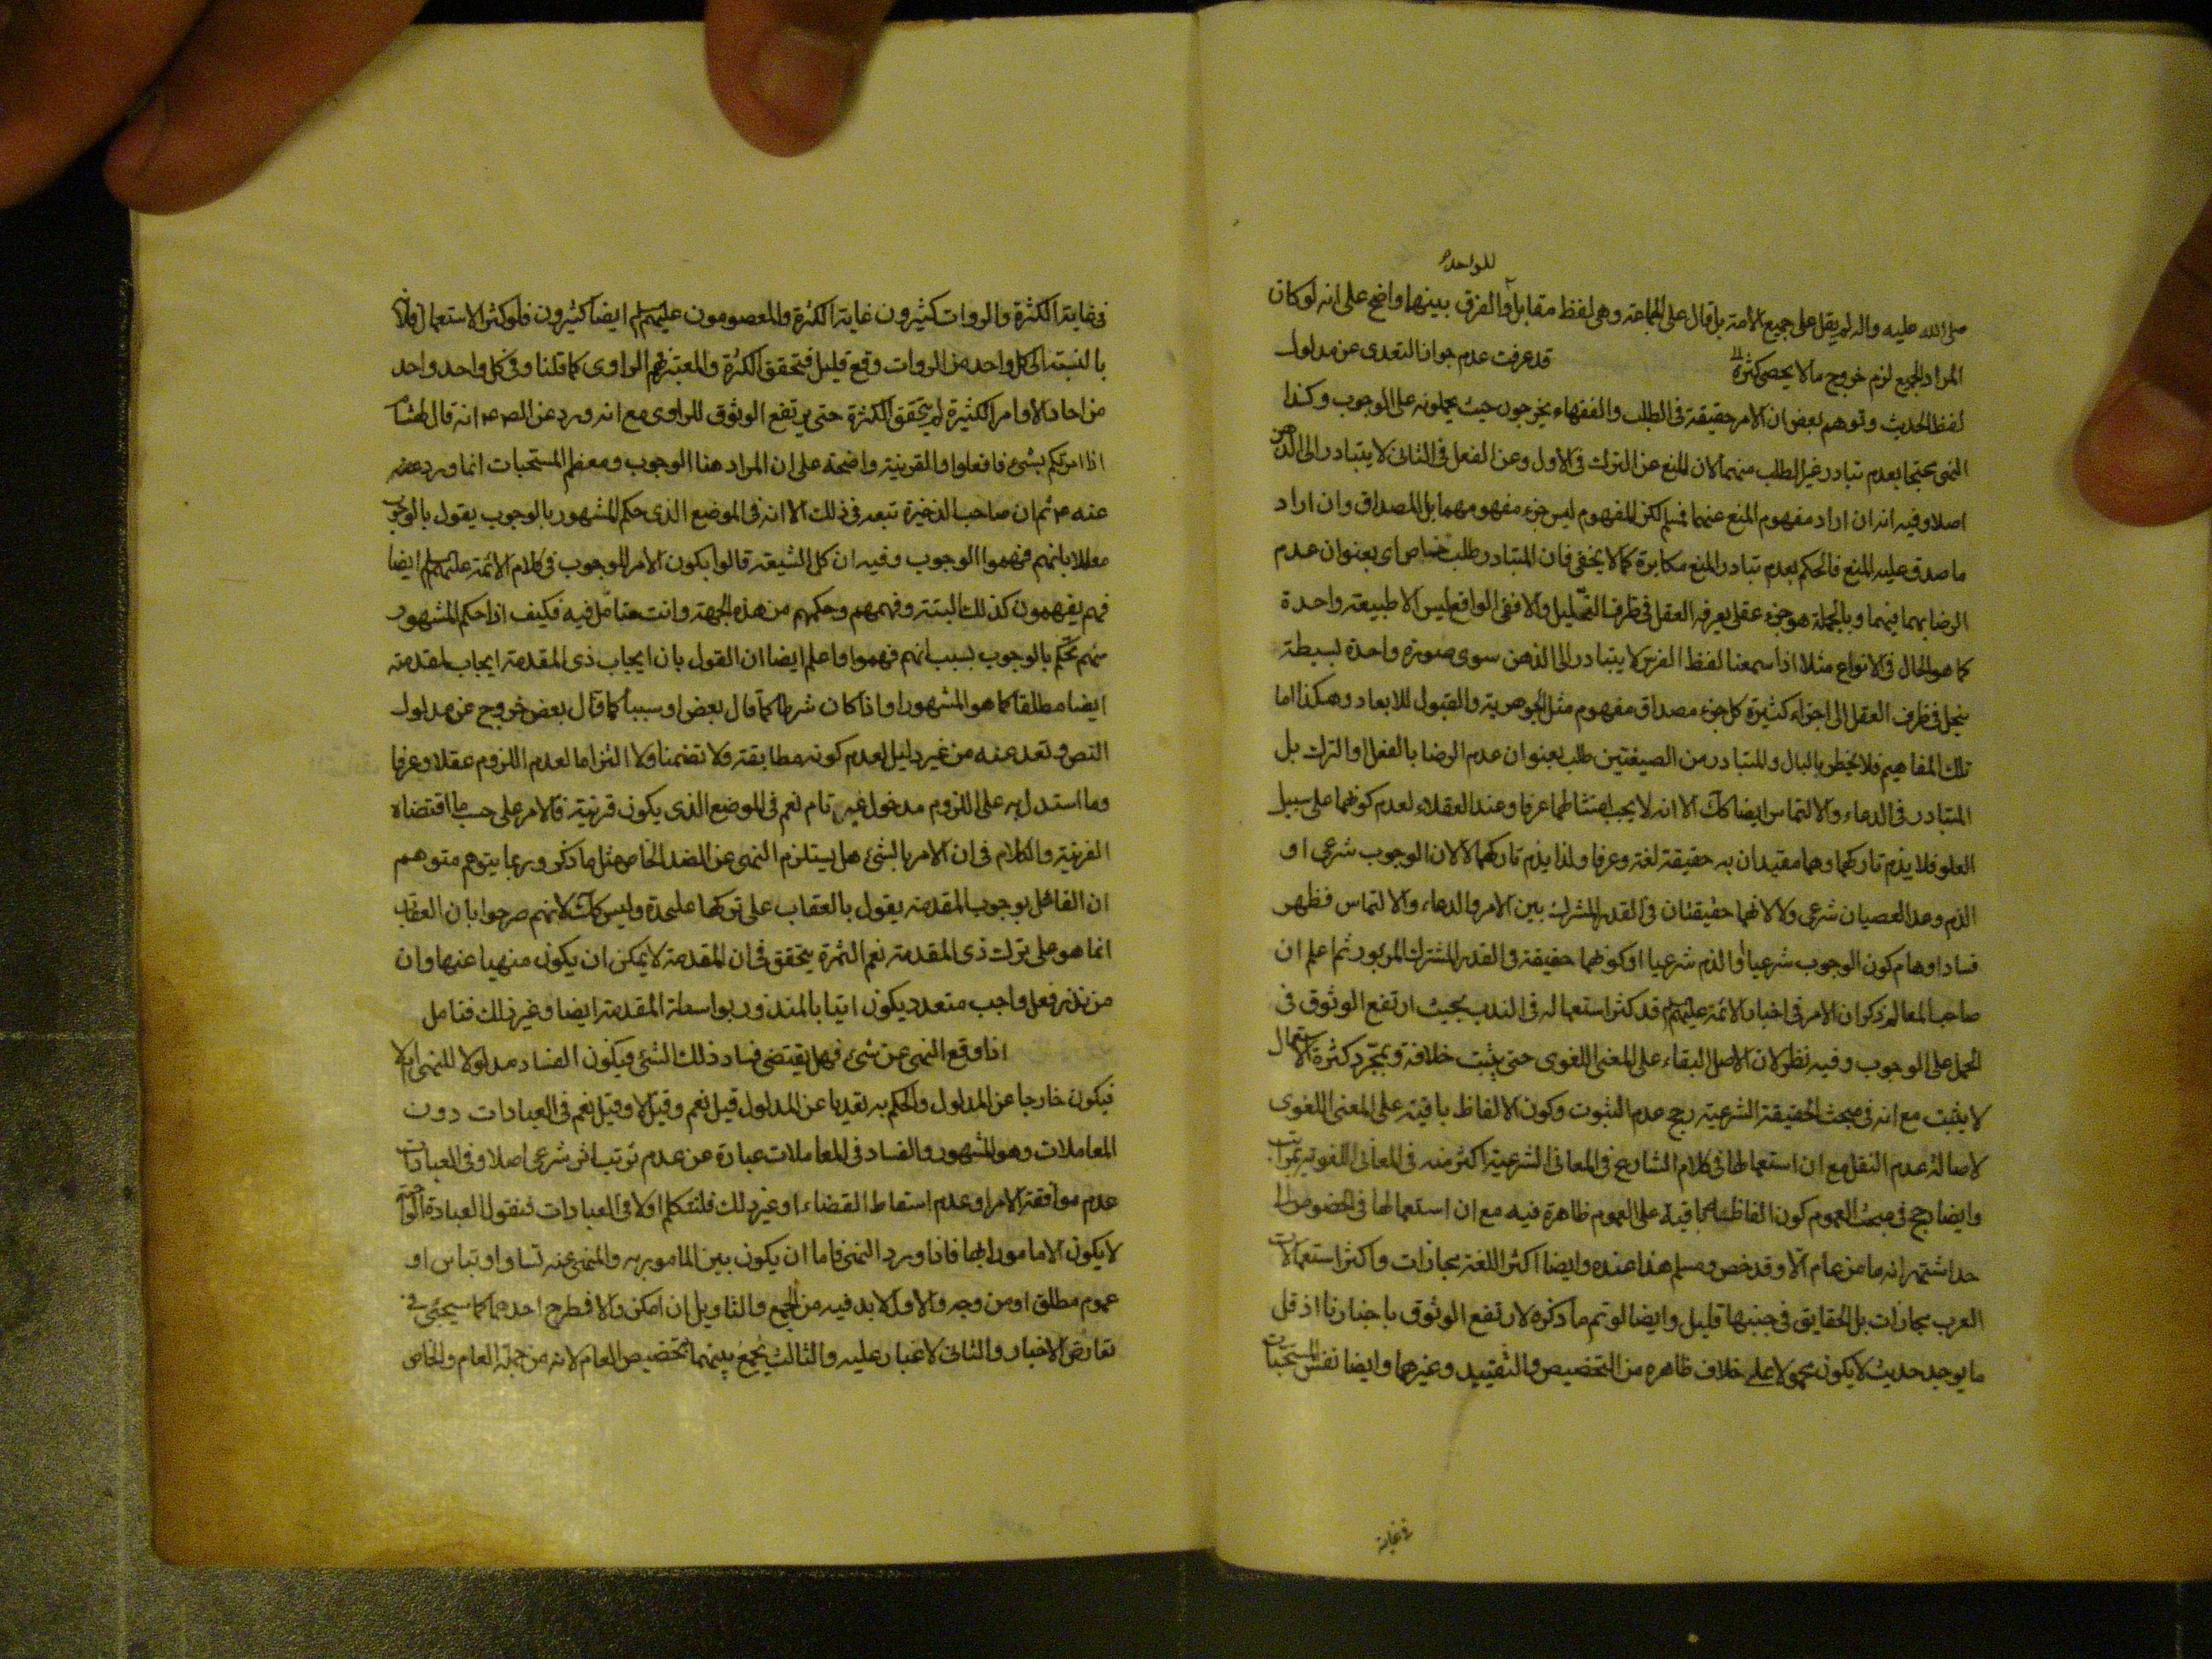 للواحد
صلى الله عليه واله لم يقل على جميع الامة بل قال على الجماعة وهى لفظ مقابل والفرق بينهما واضح على انه لو كان
المراد الجميع لزم خروج ما لا يحصى كثرة قد عرفت عدم جواز التعدى عن مدلول
لفظ الحديث وتوهم بعض ان الامر حقيقة فى الطلب والفقهاء يخرجون حيث يحملونه على الوجوب وكذا
النهى محتجا بعدم تبادر غير الطلب منهما لان المنع عن الترك فى الاول وعن الفعل فى الثانى لا يتبادر الى الذهن
اصلا وفيه انه ان اراد مفهوم المنع عنهما فمسلم لكن المفهوم ليس جزء مفهومهما بل المصداق وان اراد
ما صدق عليه المنع فالحكم بعدم تبادر المنع مكابرة كما لا يخفى فان المتبادر طلب خاص اى بعنوان عدم
الرضا بهما فيهما وبالجملة هو جزء عقلى يعرفه العقل فى ظرف التحليل والا ففى الواقع ليس الا طبيعة واحدة
كما هو الحال فى الانواع مثلا اذا سمعنا لفظ الفرس لا يتبادر الى الذهن سوى صورة واحدة بسيطة
ينحل فى ظرف العقل الى اجزاء كثيرة كل جزء مصداق مفهوم مثل الجوهرية والقبول للابعاد وهكذا اما
تلك المفاهيم فلا يخطر بالبال والمتبادر من الصيغتين طلب بعنوان عدم الرضا بالفعل او الترك بل
المتبادر فى الدعاء والالتماس ايضا كك الا انه لا يجب امتثالهما عرفا وعند العقلاء لعدم كونهما على سبيل
العلو فلا يذم تاركهما وهما مقيدان به حقيقة لغة وعرفا ولذا يذم تاركهما لا لان الوجوب شرعى او
الذم وعد العصيان شرعى ولا لانهما حقيقتان فى القدر المشترك بين الامر والدعاء والالتماس فظهر
فساد اوهام كون الوجوب شرعيا او الذم شرعيا او كونهما حقيقة فى القدر المشترك المزبور ثم اعلم ان
صاحب المعالم ذكر ان الامر فى اخبار الائمة عليهم السلم قد كثر استعماله فى الندب بحيث ارتفع الوثوق فى
الحمل على الوجوب وفيه نظر لان الاصل البقاء على المعنى اللغوى حتى يثبت خلافه وبمجرد كثرة الاستعمال
لا يثبت مع انه فى مبحث الحقيقة الشرعية رجح عدم الثبوت وكون الالفاظ باقية على المعنى اللغوى
لاصالة عدم النقل مع ان استعمالها فى كلام الشارع فى المعانى الشرعية اكثر منه فى المعانى اللغوية بمراتب
وايضا رجح فى مبحث العموم كون الفاظه باقية على العموم ظاهرة فيه مع ان استعمالها فى الخصوص الى
حد اشتهر انه ما من عام الا وقد خص ومسلم هذا عنده وايضا اكثر اللغة مجازات واكثر استعمالات
العرب مجازات بل الحقايق فى جنبها قليل وايضا لو تم ما ذكره لارتفع الوثوق باخبارنا اذ قل
ما يوجد حديث لا يكون محمولا على خلاف ظاهره من التخصيص والتقييد وغيرهما وايضا نفس المستحبات
فى غاية
فى غاية الكثرة والروات كثيرون غاية الكثرة والمعصومون عليهم السلم ايضا كثيرون فلو كثر الاستعمال
بالنسبة الى كل واحد من الروات وقع قليل فتحقق الكثرة والمعتبر فهم الراوى كما قلنا وفى كل واحد واحد
من احاد الاوامر الكثيرة لم يتحقق الكثرة حتى يرتفع الوثوق للراوى مع انه ورد عن انه قال
اذا امرتكم بشئ فافعلوا والقرينة واضحة على ان المراد هنا الوجوب ومعظم المستحبات انما ورد عنه
عنه ثم ان صاحب الذخيرة تبعه فى ذلك الا انه فى الموضع الذى حكم المشهور بالوجوب يقول بالوجوب
معللا بانهم فهموا الوجوب وفيه ان كل الشيعة قالوا بكون الامر للوجوب فى كلام الائمة عليهم السلم ايضا
فهم يفهمون كذلك البتة وفهمهم وحكمهم من هذه الجهة وانت متامل فيه فكيف اذا حكم المشهور
منهم تحكم بالوجوب بسبب انهم فهموا واعلم ايضا ان القول بان ايجاب ذى المقدمة ايجاب لمقدمته
ايضا مطلقا كما هو المشهور او اذا كان شرطا كما قال بعض او سببا كما قال بعض خروج عن مدلول
النص وتعد عنه من غير دليل لعدم كونه مطابقة ولا تضمنا ولا التزاما لعدم اللزوم عقلا وعرفا
وما استدل به على اللزوم مدخول غير تام نعم فى الموضع الذى يكون قرينة فالامر على حسب ما اقتضاه
القرينة والكلام فى ان الامر بالشئ هل يستلزم النهى عن الضد الخاص مثل ما ذكر وربما يتوهم متوهم
ان القائل بوجوب المقدمة يقول بالعقاب على تركها عليحدة وليس كك لانهم صرحوا بان العقاب
انما هو على ترك ذى المقدمة نعم الثمرة يتحقق فى ان المقدمة لا يمكن ان يكون منهيا عنها وان
من نذر فعل واجب متعدد يكون اتيا بالمنذور بواسطة المقدمة ايضا وغير ذلك فتامل
اذا وقع النهى عن شئ فهل يقتضى فساد ذلك الشئ فيكون الفساد مدلولا للنهى ام لا
فيكون خارجا عن المدلول والحكم به تعديا عن المدلول قيل نعم وقيل لا وقيل نعم فى العبادات دون
المعاملات وهو المشهور والفساد فى المعاملات عبارة عن عدم ترتب اثر شرعى اصلا وفى العبادات
عدم موافقة الامر او عدم اسقاط القضاء او غير ذلك فلنتكلم اولا فى العبادات فنقول العبادة
لا يكون الا مامورا بها فاذا ورد النهى فاما ان يكون بين المامور به والمنهى عنه تساو او تباين او
عموم مطلق او من وجه والاول لا بد فيه من الجمع والتاويل ان امكن والا فطرح احدهما كما سيجئ فى
تعارض الاخبار والثانى لا غبار عليه والثالث يجمع بينهما بتخصيص العام لانه من جملة العام والخاص